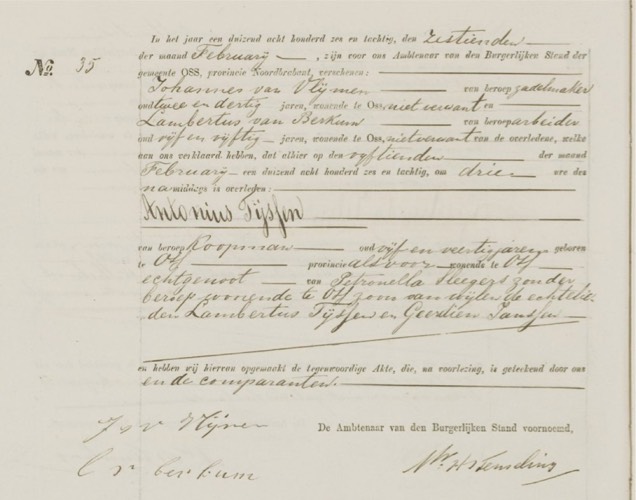 In het jaar een duizend acht honderd zes en tachtig, den zestienden
der maand February, zijn voor ons Ambtenaar van den Burgerlijken Stand der
No. 35
gemeente OSS, provincie Noordbrabant, verschenen:
Johannes van Vlijmen van beroep zadelmaker
oud twee en dertig jaren, wonende te Oss, niet verwant en
Lambertus van Berkum van beroep arbeider
oud vijf en vijftig jaren, wonende te Oss, niet verwant van de overledene, welke
aan ons verklaard hebben, dat alhier op den vijftienden der maand
February een duizend acht honderd zes en tachtig, om drie ure des
namiddags is overleden:
Antonius Tijssen
van beroep Koopman oud vijf en veertig jaren geboren
te Oss provincie als voor wonende te Oss
echtgenoot van Petronella Sleegers zonder
beroep wonende te Oss zoon van wijlen de echtelie-
den Lambertus Tijssen en Geerdien Janssen
en hebben wij hiervan opgemaakt de tegenwoordige Akte, die, na voorlezing, is geteekend door ons
en de comparanten.
De Ambtenaar van den Burgerlijken Stand voornoemd,
J v Vlijmen
L v berkum